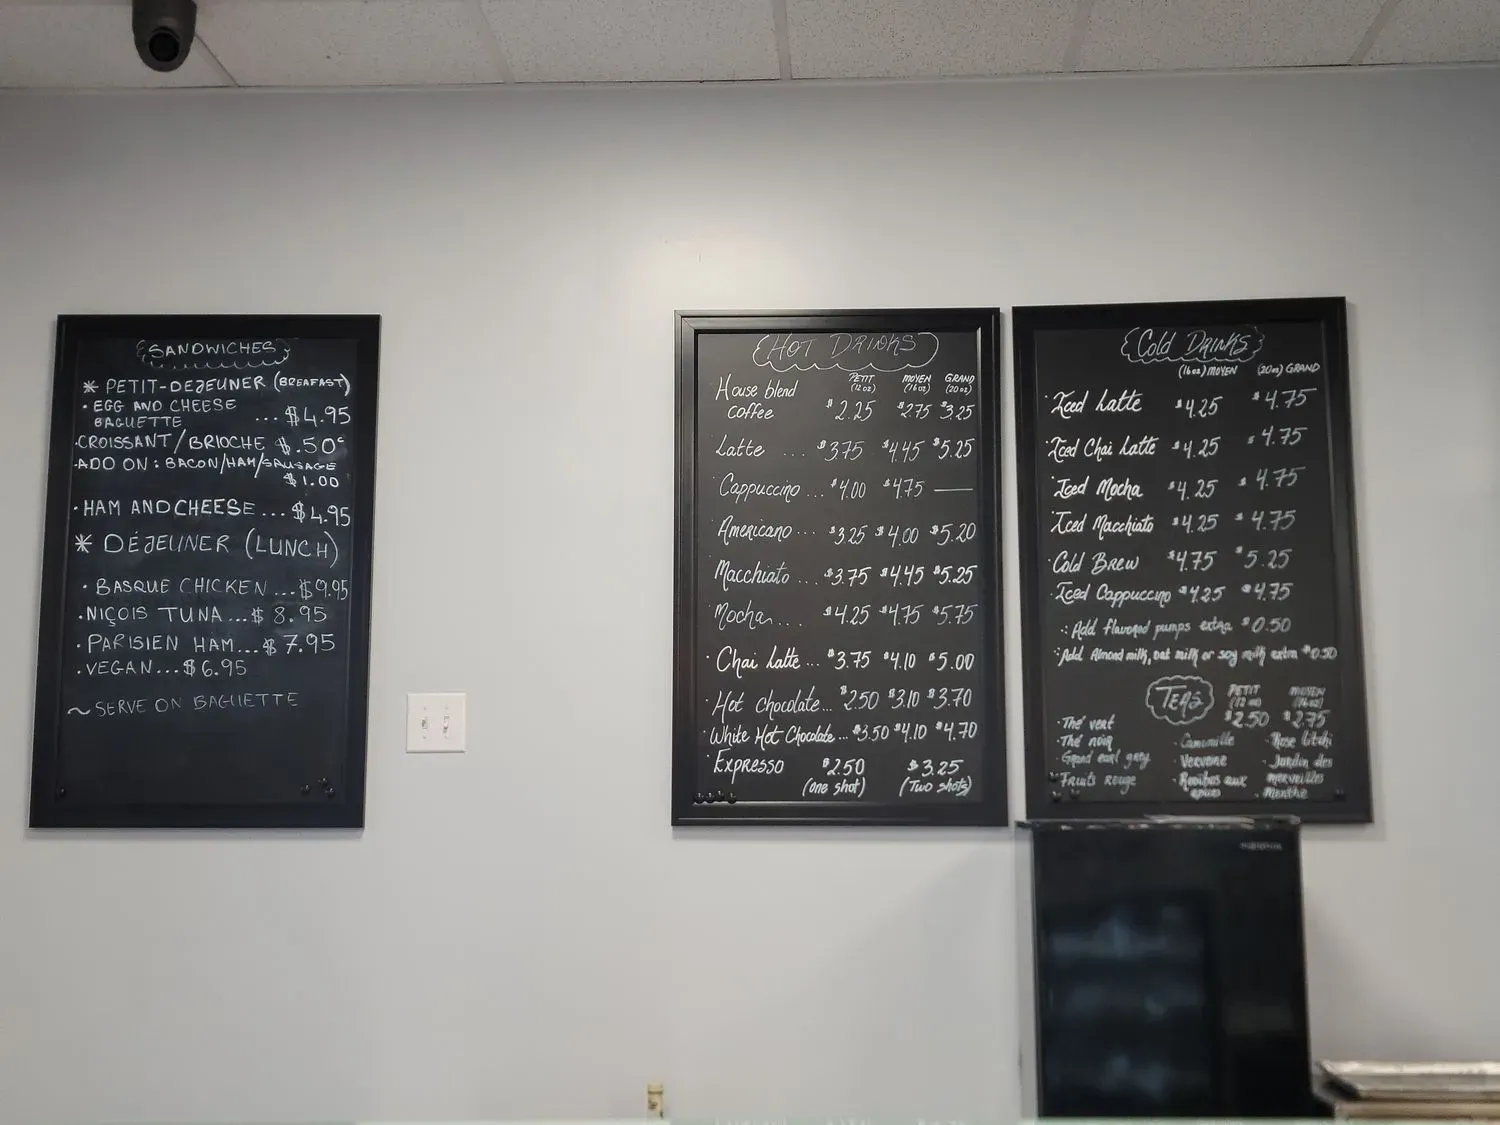 SANDWICHES
* PETIT-DEJEUNER (BREAFAST)
· EGG AND CHEESE
BAGUETTE ... $4.95
· CROISSANT/BRIOCHE $.50¢
· ADD ON: BACON/HAM/SAUSAGE
$1.00
· HAM AND CHEESE... $4.95
* DÉJEUNER (LUNCH)
· BASQUE CHICKEN ... $9.95
· NIÇOIS TUNA... $8.95
· PARISIEN HAM... $7.95
· VEGAN... $6.95
~ SERVE ON BAGUETTE
HOT DRINKS
PETIT MOYEN GRAND
(12oz) (16oz) (20oz)
House blend
coffee $2.25 $2.75 $3.25
Latte ... $3.75 $4.45 $5.25
Cappuccino ... $4.00 $4.75 —
Americano ... $3.25 $4.00 $5.20
Macchiato ... $3.75 $4.45 $5.25
Mocha ... $4.25 $4.75 $5.75
Chai Latte ... $3.75 $4.10 $5.00
Hot chocolate... $2.50 $3.10 $3.70
White Hot Chocolate ... $3.50 $4.10 $4.70
Expresso $2.50 $3.25
(one shot) (Two shots)
Cold DRINKS
(16oz) MOYEN (20oz) GRAND
Iced Latte $4.25 $4.75
Iced Chai Latte $4.25 $4.75
Iced Mocha $4.25 $4.75
Iced Macchiato $4.25 $4.75
Cold BREW $4.75 $5.25
Iced Cappuccino $4.25 $4.75
Add flavored pumps extra $0.50
Add Almond milk, oat milk or soy milk extra $0.50
TEAS
PETIT MOYEN
(12 oz) (16oz)
$2.50 $2.75
· Thé vert
· Thé noir · Camomille · Rose litchi
· Grand earl grey · Verveine · Jardin des
· Fruits rouge · Rooibos aux merveilles
épices · Menthe